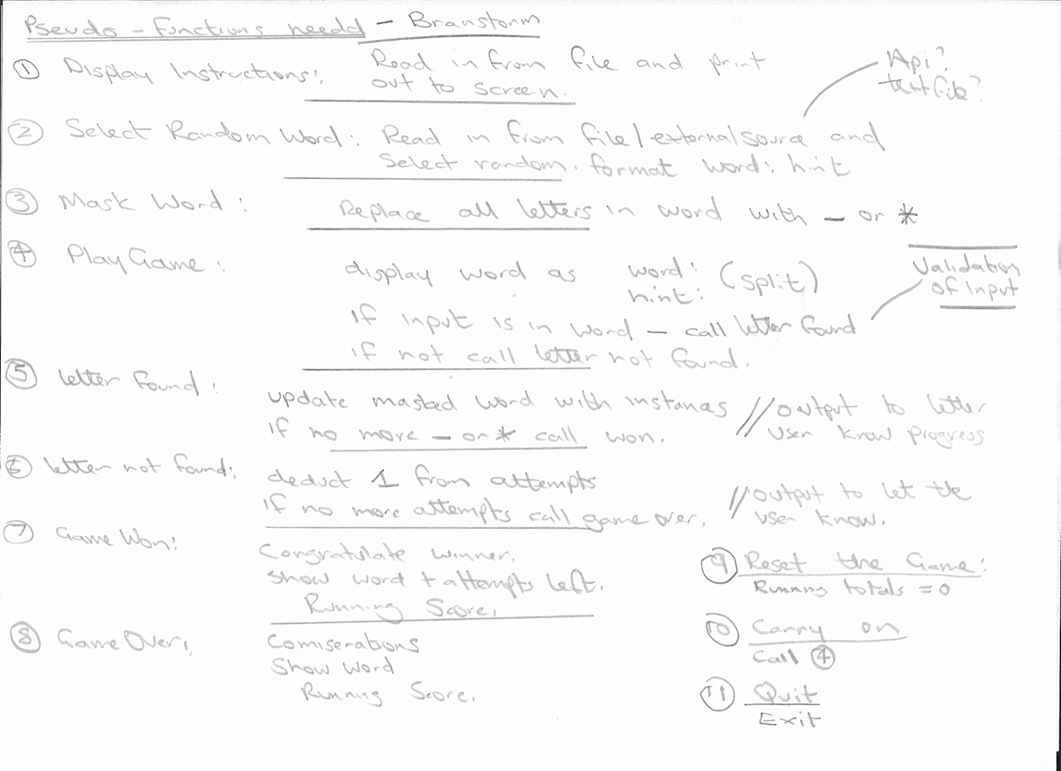 Pseudo - Functions needd - Branstorm
① Display Instructions:. Read in from file and print
out to screen.
Api?
text file?
② Select Random Word: Read in from file/external source and
select random. format word: hint
③ Mask Word: Replace all letters in word with - or *
④ Play Game: display word as word: (split)
hint:
if input is in word - call letter found
if not call letter not found.
Validation
of input
⑤ letter found: update masked word with instances // output to letter
if no more - or * call won. user know progress
⑥ letter not found: deduct 1 from attempts // output to let the
if no more attempts call game over. user know.
⑦ Game Won: Congratulate winner.
show word + attempts left.
Running Score.
⑧ Game Over: Comiserations
Show word
Running Score.
⑨ Reset the Game:
Running totals = 0
⑩ Carry on
Call ④
⑪ Quit
Exit